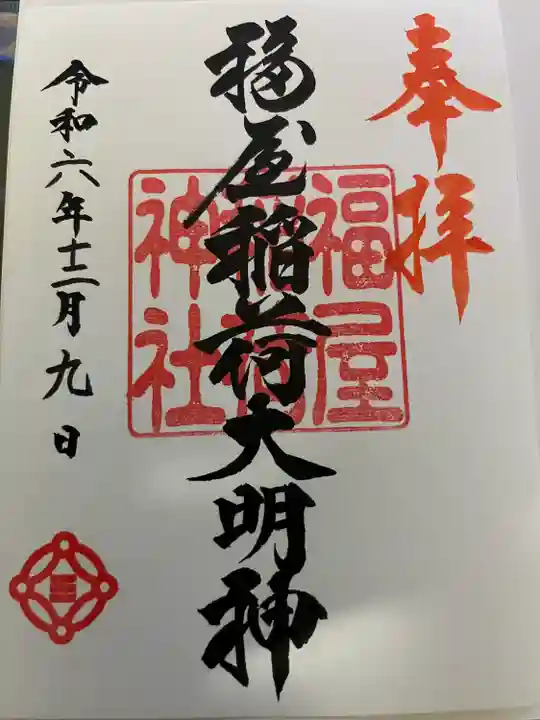 奉拝
福屋稲荷大明神
福屋
稲荷
神社
令和六年十二月九日
三